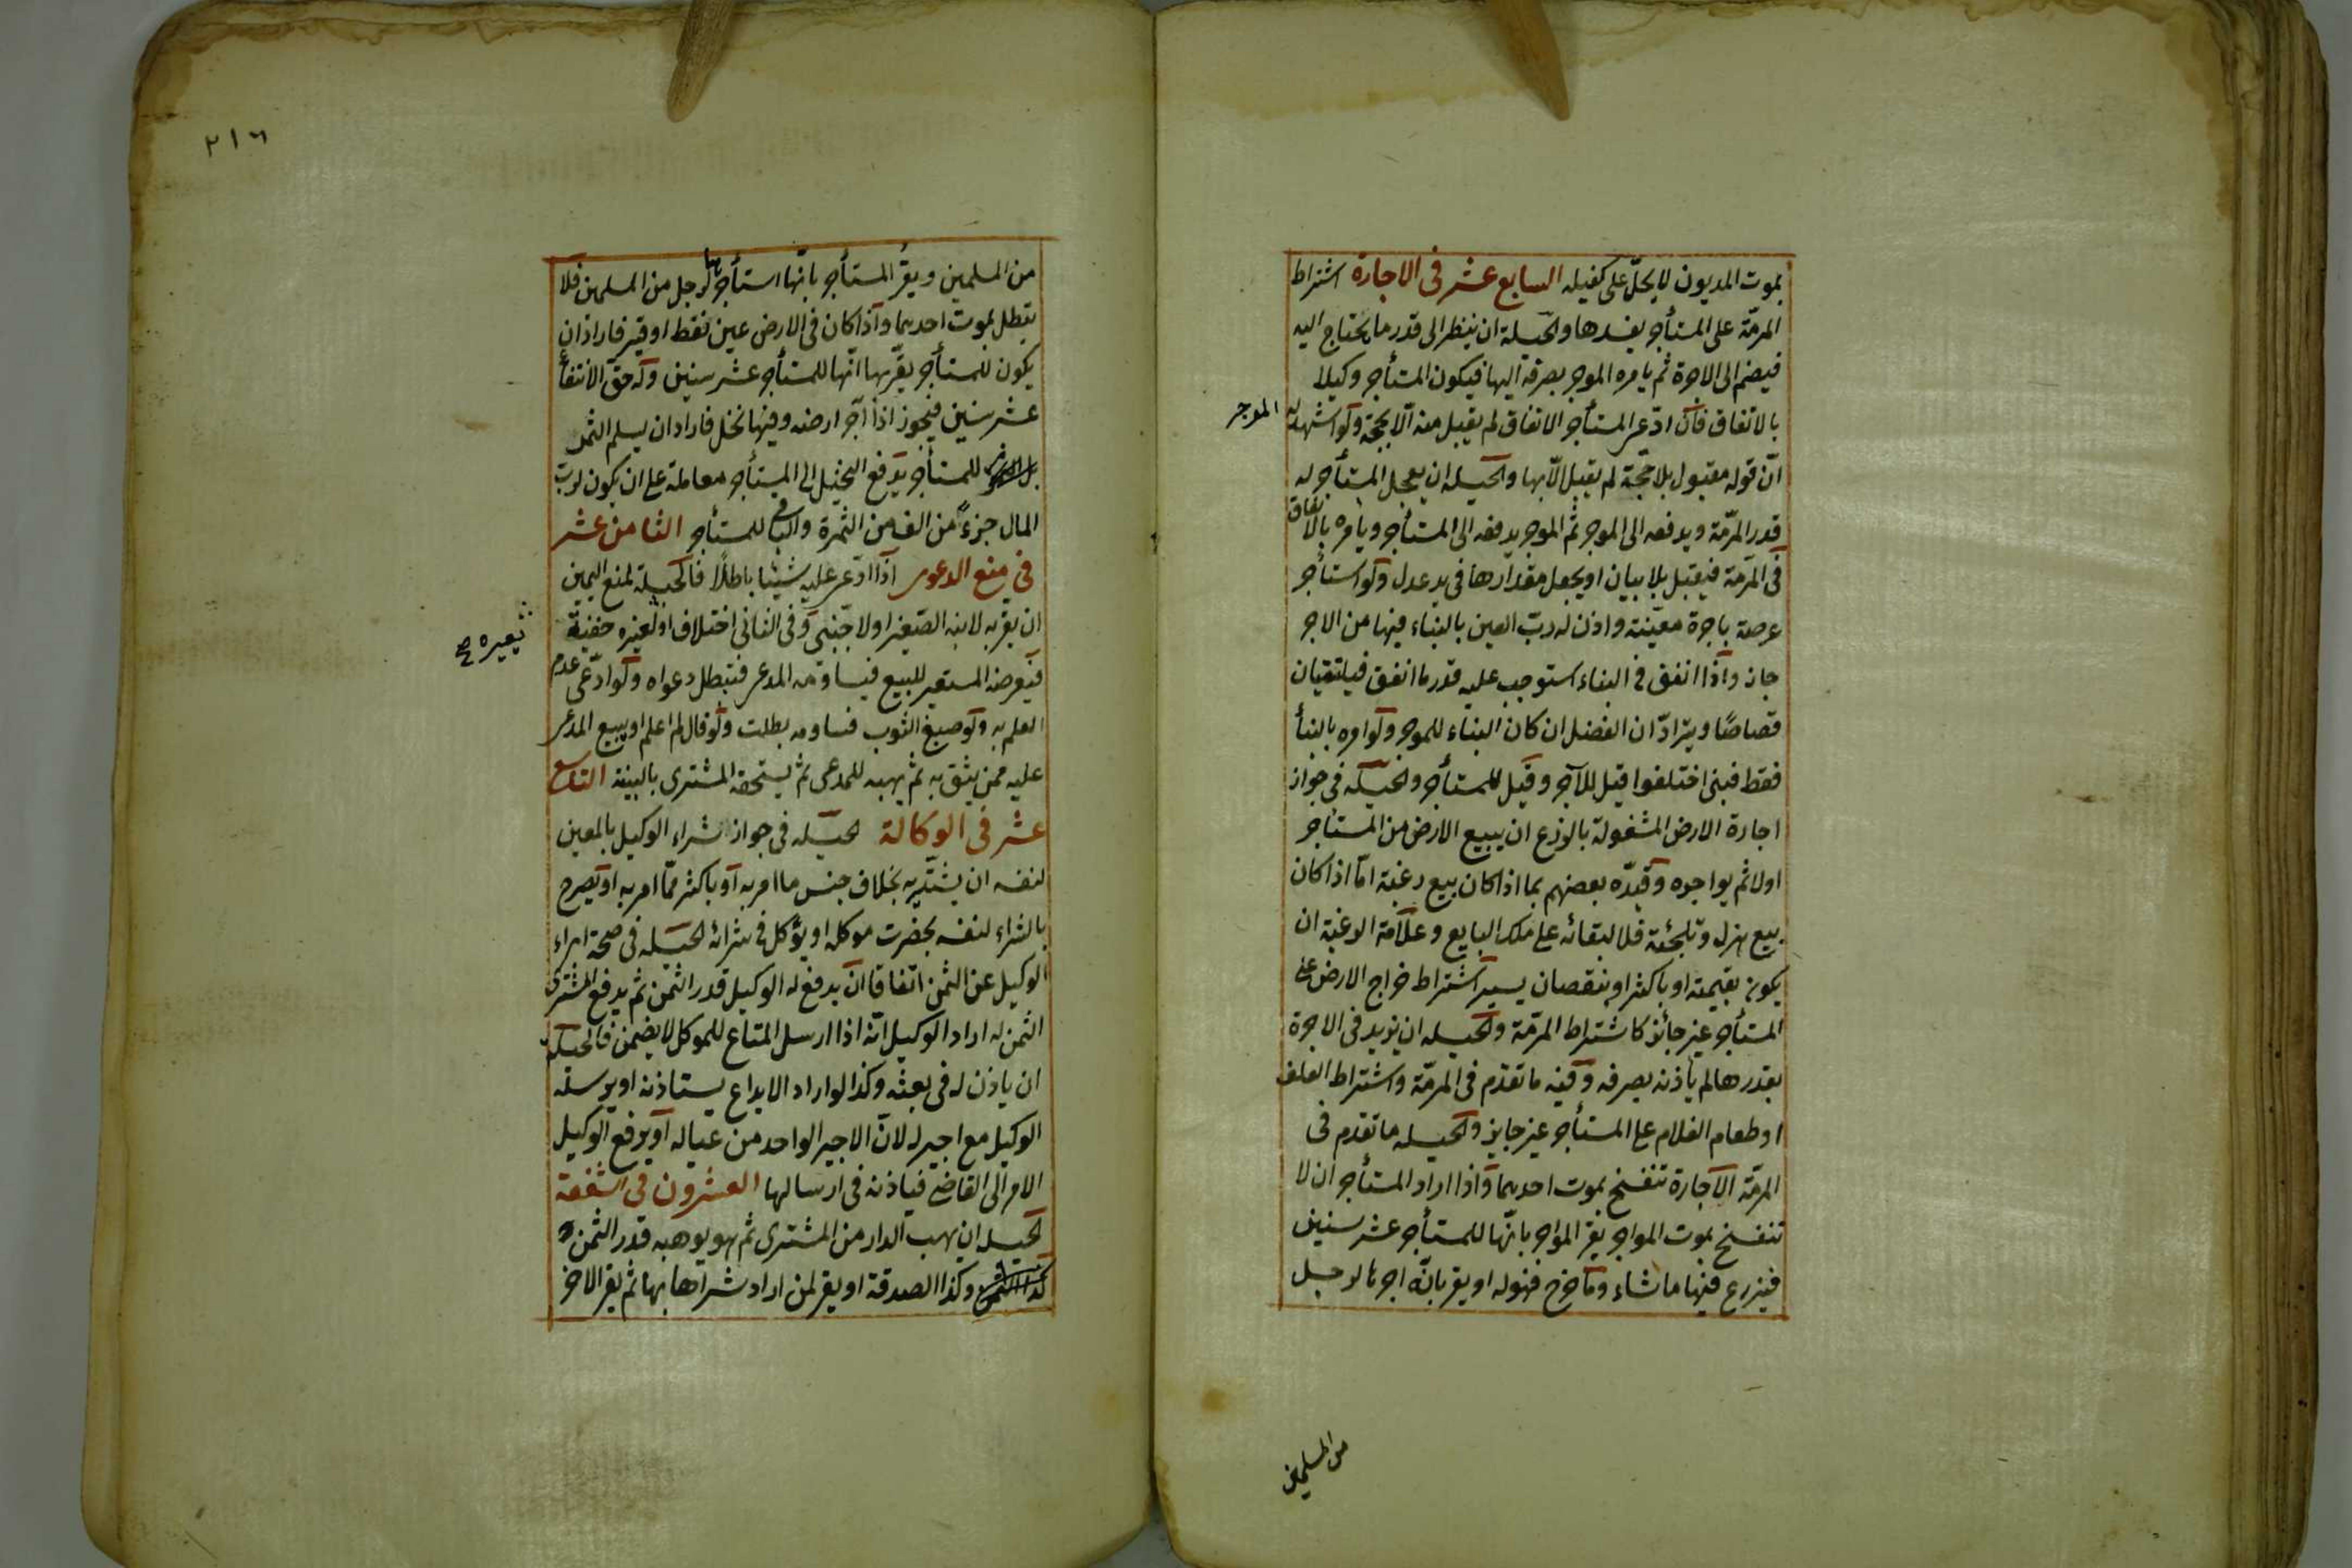 بموت المديون لا يحل على كفيله السابع عشر في الاجارة اشتراط
المرمّة على المستأجر يفسدها والحيلة ان ينظر الى قدر ما يحتاج اليه
فيضم الى الاجرة ثم يامره الموجر بصرفه اليها فيكون المستأجر وكيلا
بالانفاق فان ادعى المستأجر الانفاق لم يقبل منه الا بحجة ولو اشهد له الموجر
انّ قوله مقبول بلا حجّة لم يقبل الّا بها والحيلة ان يعجل المستأجر له
قدر المرمّة ويدفعه الى الموجر ثم الموجر يدفعه الى المستأجر ويامره بالانفاق
في المرمّة فيقبل بلا بيان او يجعل مقدارها في يد عدل ولو استأجر
عرصة باجرة معيّنة واذن له ربّ العين بالبناء فيها من الاجر
جاز واذا انفق في البناء استوجب عليه قدر ما انفق فيلتقيان
قصاصًا ويترادّان الفضل ان كان البناء للموجر ولو امره بالبنأ
فقط فبنى اختلفوا قيل للآجر وقيل للمستأجر والحيلة في جواز
اجارة الارض المشغولة بالزرع ان يبيع الارض من المستأجر
اولا ثم يواجره وقيّده بعضهم بما اذا كان بيع رغبة امّا اذا كان
بيع هزل وتلجئة فلا لبقائه على ملك البايع وعلامة الرغبة ان
يكون بقيمته او باكثر او بنقصان يسير اشتراط خراج الارض على
المستأجر غير جائز كاشتراط المرمّة والحيلة ان يزيد في الاجرة
بقدرها ثم ياذنه بصرفه وفيه ما تقدّم في المرمّة واشتراط العلف
او طعام الغلام على المستأجر غير جايز والحيلة ما تقدم في
المرمّة الاجارة تنفسخ بموت احدهما واذا اراد المستأجر ان لا
تنفسخ بموت المواجر يقر المواجر بانّها للمستأجر عشر سنين
فيزرع فيها ما شاء وما خرج فهو له او يقر بانّه اجرها لرجل
من المسلمين
٢١٦
من المسلمين ويقرّ المستأجر بانّها استأجرها لرجل من المسلمين فلا
تبطل بموت احدهما واذا كان في الارض عين نفط او قير فاراد ان
يكون للمستأجر يقرّ بها انّها للمستأجر عشر سنين وله حقّ الانتفاع
عشر سنين فيجوز اذا آجر ارضه وفيها نخل فاراد ان يسلم الثمر
للمستأجر يدفع النخيل الى المستأجر معاملة على ان يكون لربّ
المال جزءً من الف من الثمرة والباقي للمستأجر الثامن عشر
في منع الدعوى اذا ادّعى عليه شيئا باطلًا فالحيلة لمنع اليمين
ان يقرّ به لابنه الصّغير او لاجنبي وفي الثاني اختلاف او لغيره خفية
يعيره صح
فيعرضه المستعير للبيع فيساومه المدعى فتبطل دعواه ولو ادّعى عدم
العلم به ولو صبغ الثوب فساومه بطلت ولو قال لم اعلم او يبيع المدعى
عليه ممن يثق به ثم يهبه للمدعى ثم يستحقه المشترى بالبينة التاسع
عشر في الوكالة الحيله في جواز شراء الوكيل بالمعين
لنفسه ان يشتريه بخلاف جنس ما امر به او باكثر ممّا امر به او يصرح
بالشراء لنفسه بحضرت موكله او يوكل في شرائه الحيله في صحة ابراء
الوكيل عن الثمن اتفاقا ان يدفع له الوكيل قدر الثمن ثم يدفع المشترى
الثمن له اراد الوكيل انه اذا ارسل المتاع للموكل لا يضمن فالحيله
ان ياذن له في بعثه وكذا لو اراد الايداع يستاذنه او يرسله
الوكيل مع اجير له لانّ الاجير الواحد من عياله او يرفع الوكيل
الامر الى القاضى فياذنه في ارسالها العشرون في الشفعة
الحيله ان يهب الدار من المشترى ثم هو يوهبه قدر الثمن
وكذا الصدقة او يقر لمن اراد شراها بها ثم يقر الاخر